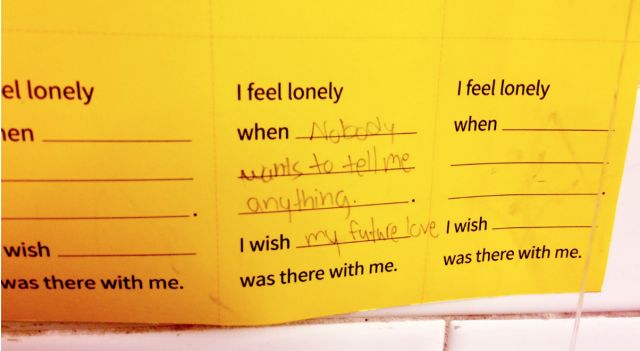 el lonely
en
wish
was there with me.
I feel lonely
when Nobody
wants to tell me
anything.
I wish my future love
was there with me.
I feel lonely
when
.
I wish
was there with me.